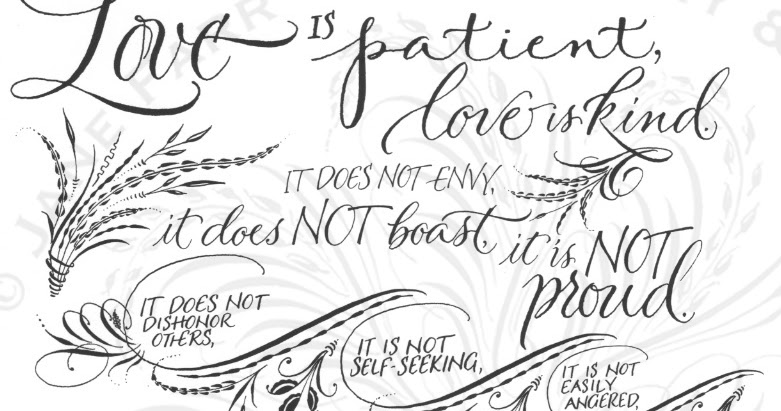 Love is patient,
love is kind.
IT DOES NOT ENVY,
it does NOT boast,
it is NOT
proud.
IT DOES NOT
DISHONOR
OTHERS,
IT IS NOT
SELF-SEEKING,
IT IS NOT
EASILY
ANGERED,